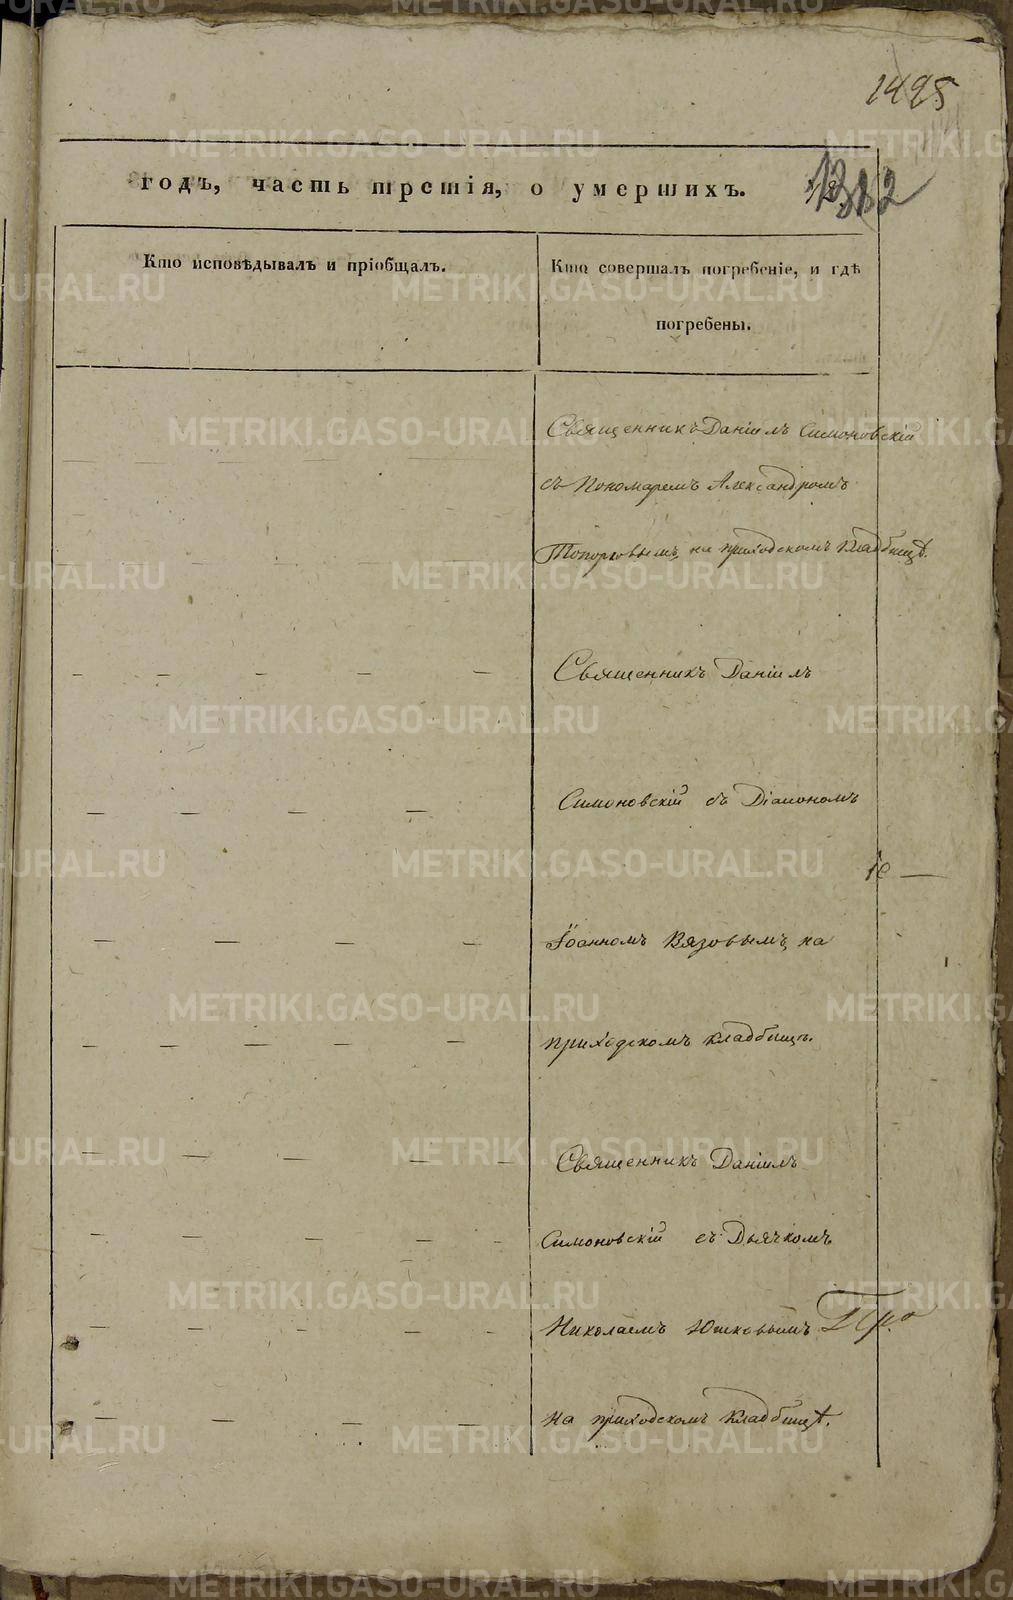 1495
годъ, часть третія, о умершихъ.
Кто исповѣдывалъ и пріобщалъ.
Кто совершалъ погребеніе, и гдѣ
погребены.
Священникъ Даніилъ Симоновскій
съ Пономаремъ Александромъ
Топорковымъ, на приходскомъ кладбищѣ.
Священникъ Даніилъ
Симоновскій съ Діакономъ
Іоанномъ Вязовымъ, на
приходскомъ кладбищѣ.
Священникъ Даніилъ
Симоновскій съ Дьячкомъ
Николаемъ Юшковымъ
на приходскомъ кладбищѣ.
METRIKI.GASO-URAL.RU